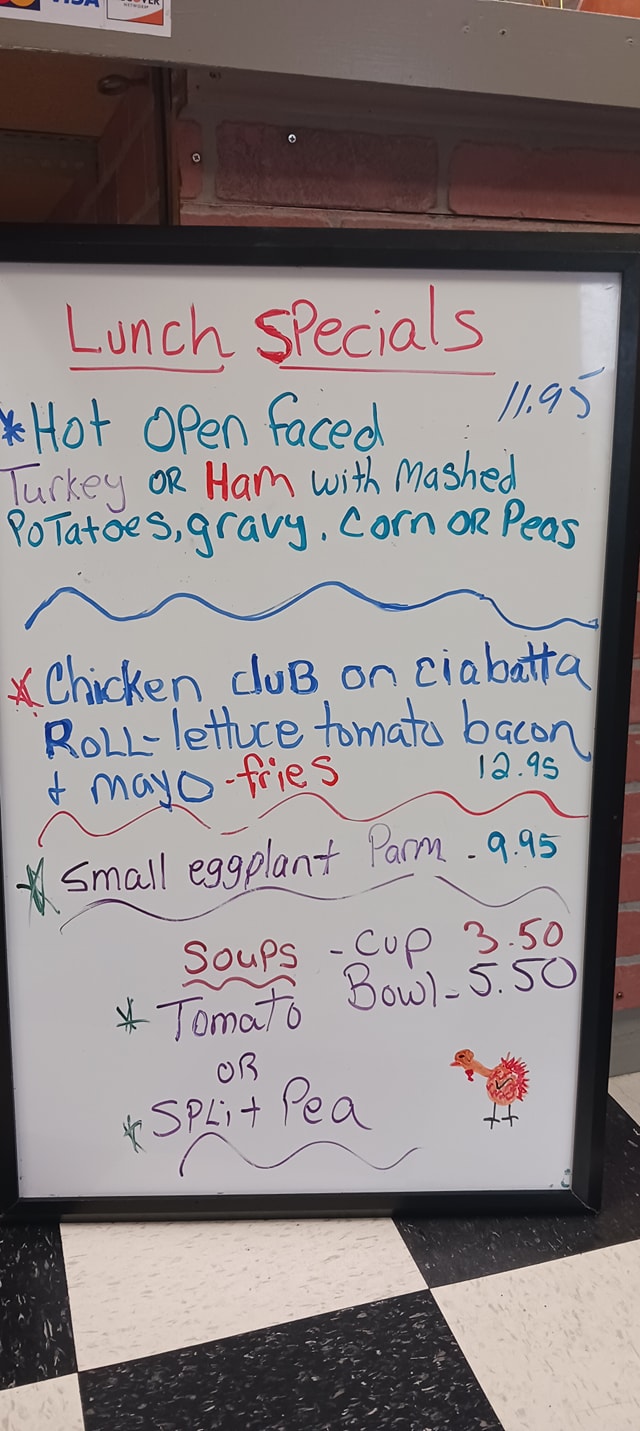 VISA
Lunch Specials
11.95
*Hot Open Faced
Turkey OR Ham with Mashed
Potatoes, gravy. Corn OR Peas
*Chicken cluB on ciabatta
ROLL-lettuce tomato bacon
+ mayo -fries 12.95
*Small eggplant Parm - 9.95
Soups - Cup 3.50
Bowl - 5.50
*Tomato
OR
*Split Pea